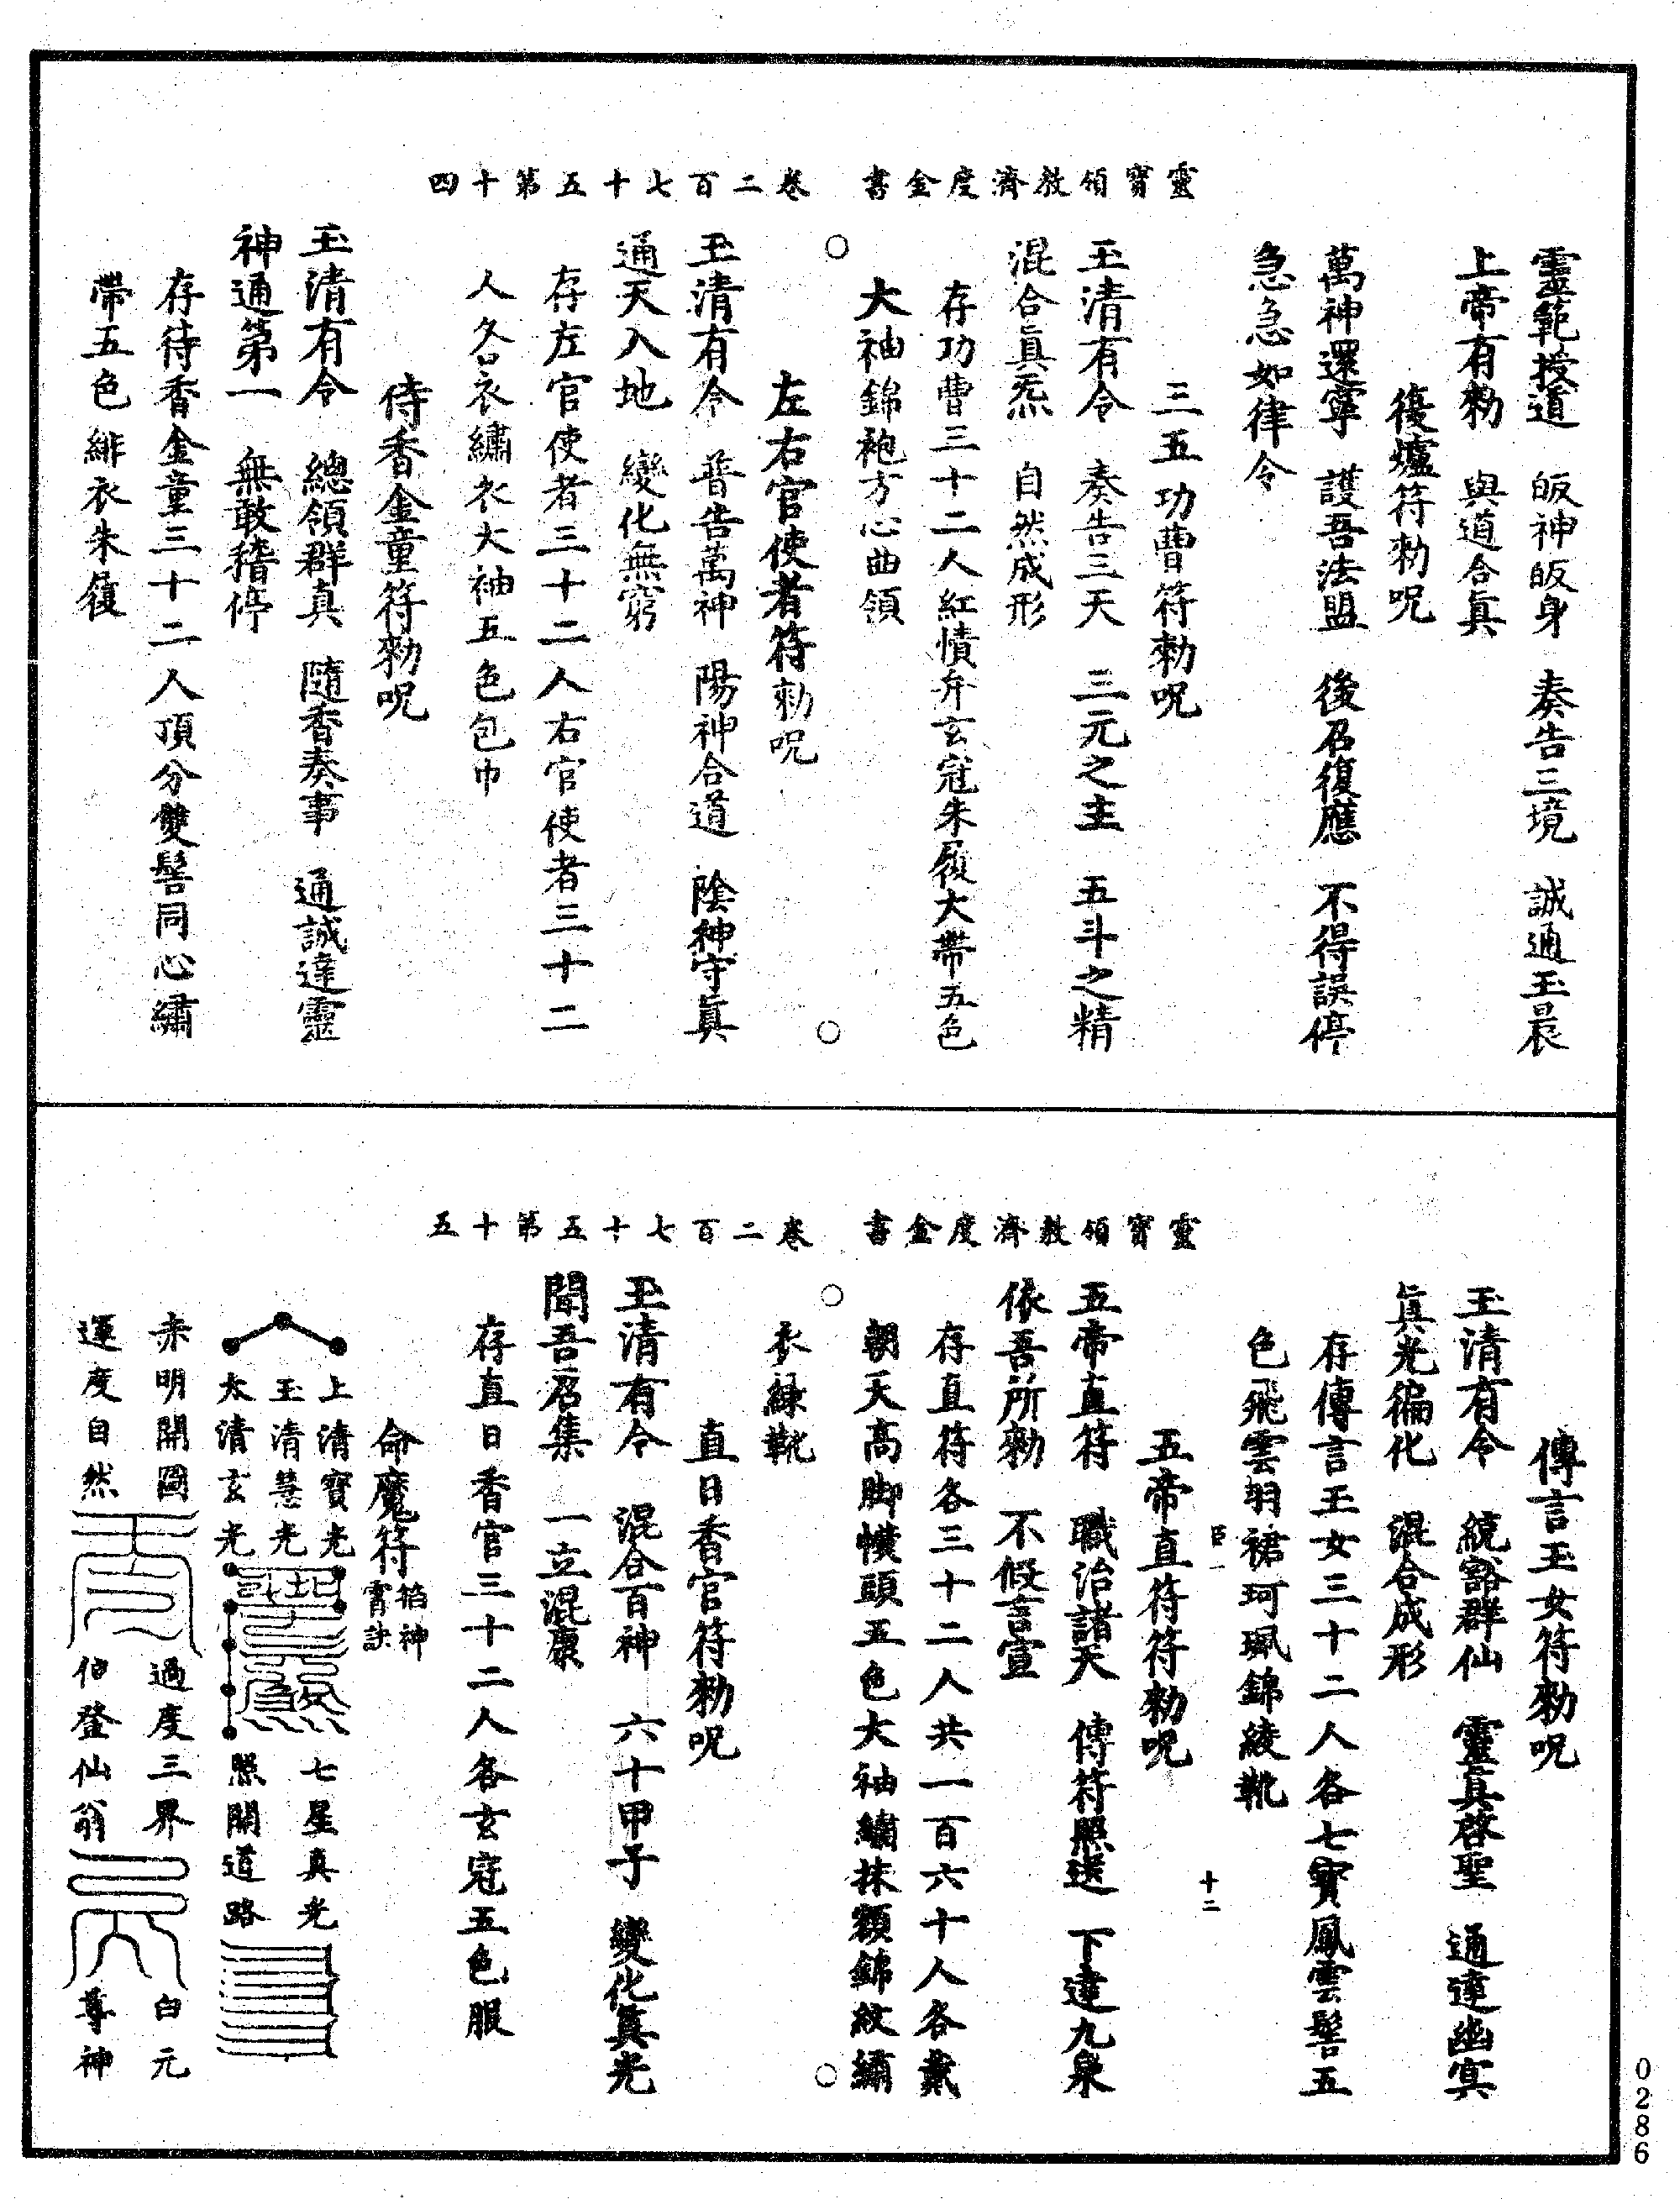 靈寶領教濟度金書　卷二百七十五第十四
靈範授道　皈神皈身　奏告三境　誠通玉晨
上帝有勑　與道合眞
復爐符勑呪
萬神還寧　護吾法盟　後召復應　不得誤停
急急如律令
三五功曹符勑呪
玉清有令　奏告三天　三元之主　五斗之精
混合眞炁　自然成形
存功曹三十二人紅幘弁玄冠朱履大帶五色
大袖錦袍方心曲領
左右官使者符勑呪
玉清有令　普告萬神　陽神合道　陰神守眞
通天入地　變化無窮
存左官使者三十二人右官使者三十二
人各衣繡衣大袖五色包巾
侍香金童符勑呪
玉清有令　總領群真　隨香奏事　通誠達靈
神通第一　無敢稽停
存待香金童三十二人頂分雙髻同心繡
帶五色緋衣朱履
靈寶領教濟度金書　卷二百七十五第十五
傳言玉女符勑呪
玉清有令　統豁群仙　靈真啓聖　通達幽冥
眞光徧化　混合成形
存傳言玉女三十二人各七寳鳳雲髻五
色飛雲羽裙珂珮錦綾靴
十二
五帝直符符勑呪
五帝直符　職治諸天　傳符照送　下達九泉
依吾所勑　不假言宣
存直符各三十二人共一百六十人各戴
朝天高脚幞頭五色大袖繡抹額錦紋繡
衣綠靴
直日香官符勑呪
玉清有令　混合百神　六十甲子　變化真光
聞吾召集　一立混康
存直日香官三十二人各玄冠五色服
命魔符 掐神霄訣
上清寶光
玉清慧光
太清玄光
七星真光
照開道路
赤明開圖　過度三界　白元
運度自然　伯登仙翁　尊神
0286